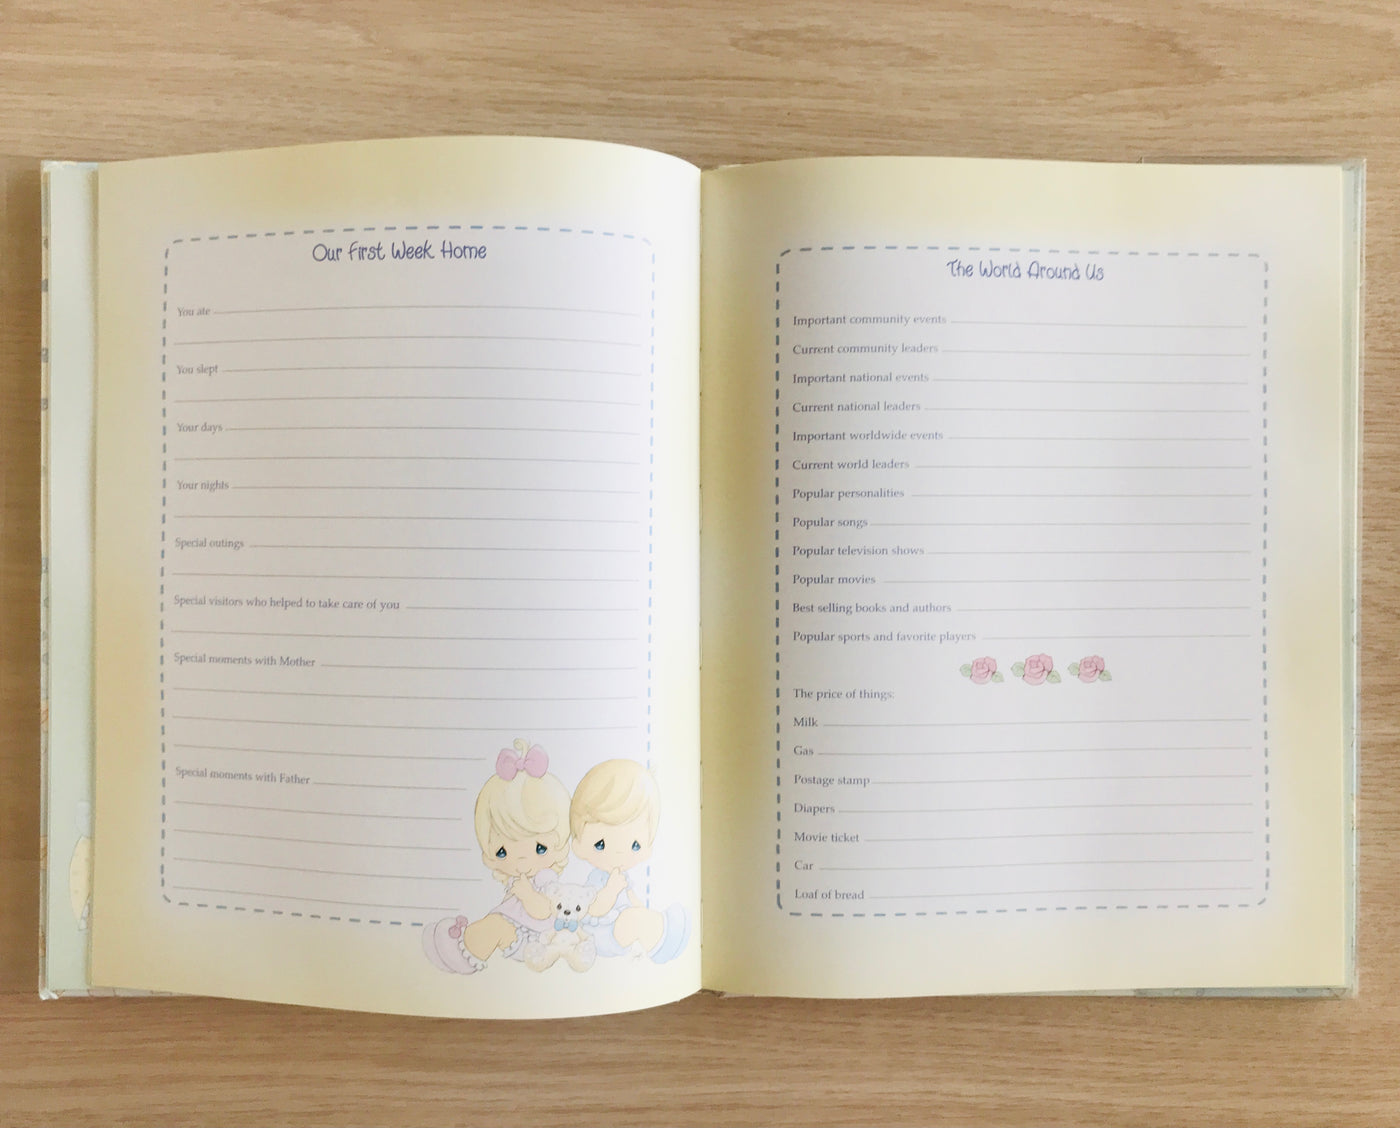 Our First Week Home
You ate
You slept
Your days
Your nights
Special outings
Special visitors who helped to take care of you
Special moments with Mother
Special moments with Father
The World Around Us
Important community events
Current community leaders
Important national events
Current national leaders
Important worldwide events
Current world leaders
Popular personalities
Popular songs
Popular television shows
Popular movies
Best selling books and authors
Popular sports and favorite players
The price of things:
Milk
Gas
Postage stamp
Diapers
Movie ticket
Car
Loaf of bread